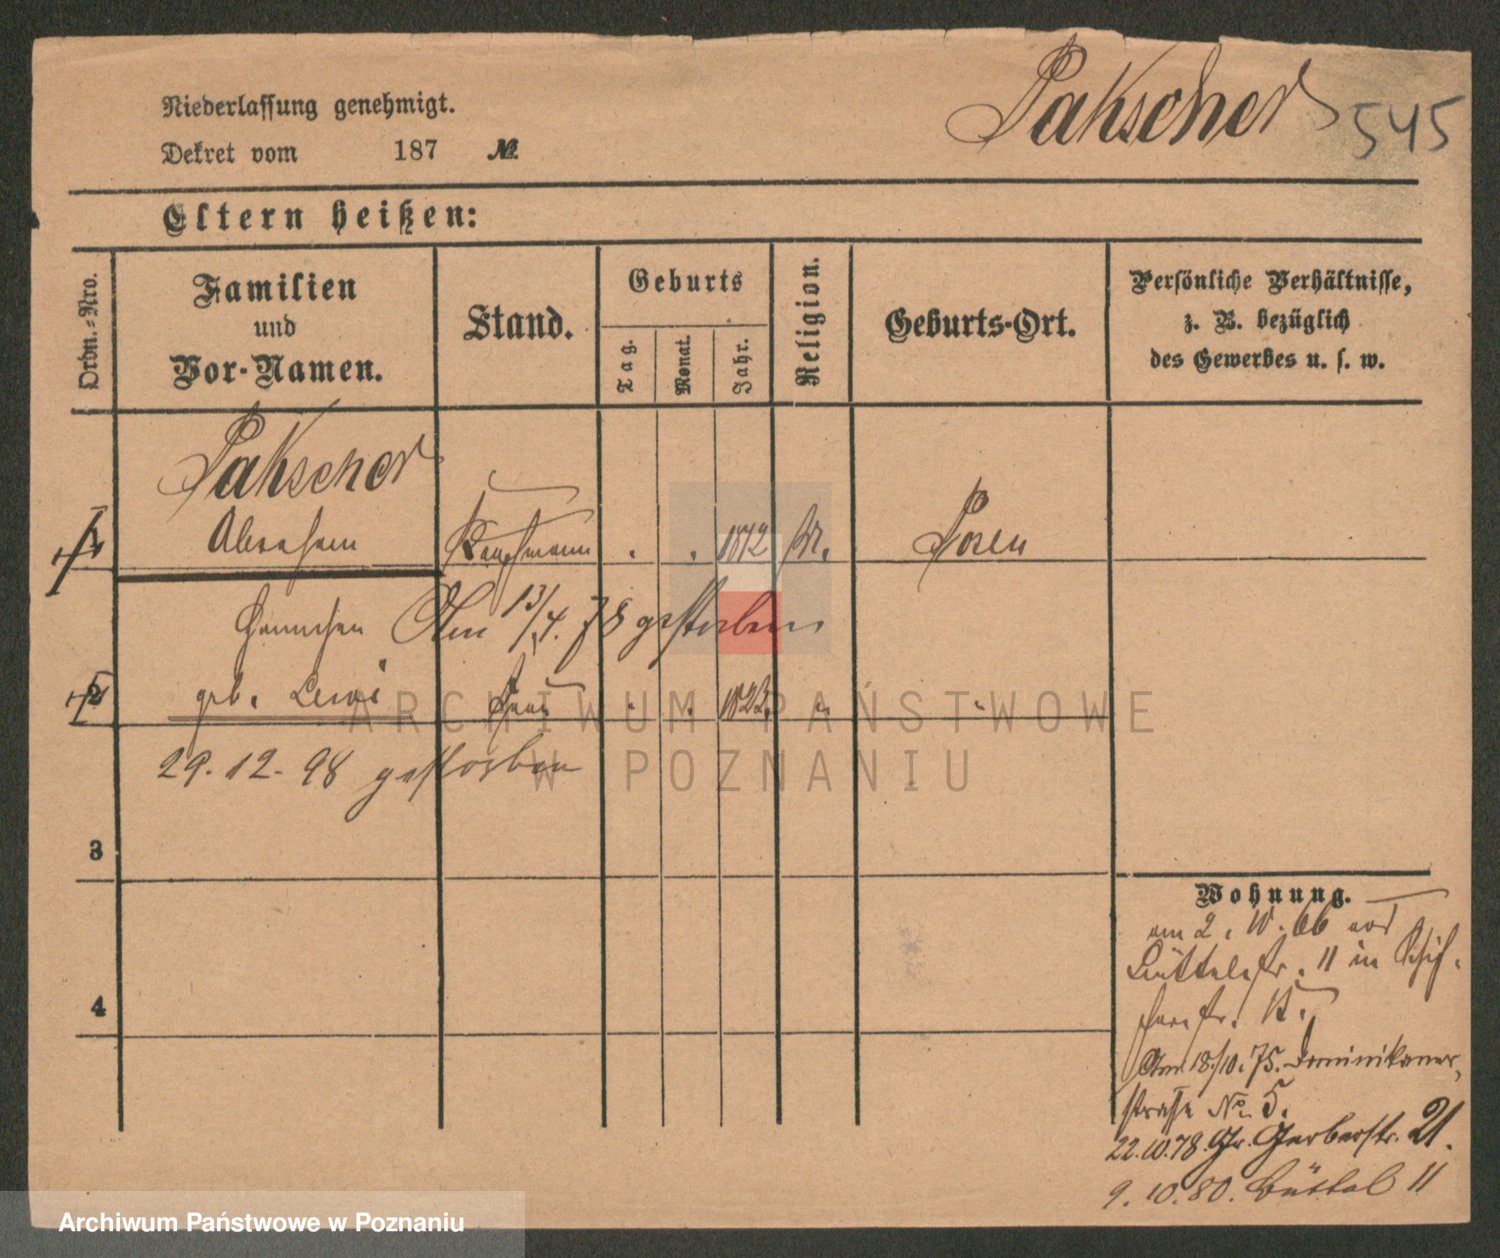 Pakscher 545
Niederlassung genehmigt.
Dekret vom 187 №
Eltern heißen:
Ordn.-Nro.
Familien
und
Vor-Namen.
Stand.
Geburts
Tag.
Monat.
Jahr.
Religion.
Geburts-Ort.
Persönliche Verhältnisse,
z. B. bezüglich
des Gewerbes u. s. w.
Pakscher
1 Abraham Kaufmann . . 1812 Posen
Hannchen Am 13/4. 78 gestorben
2 geb. Lewi Frau
29. 12. 98 gestorben
3
4
Wohnung.
am 2. 10. 66 von
Büttelstr. 11 in
Am 18/10. 75. Dominikaner-
strasse No 5.
22.10.78. Gr. Gerberstr. 21.
9. 10. 80. Büttel 11
ARCHIWUM PAŃSTWOWE
W POZNANIU
Archiwum Państwowe w Poznaniu